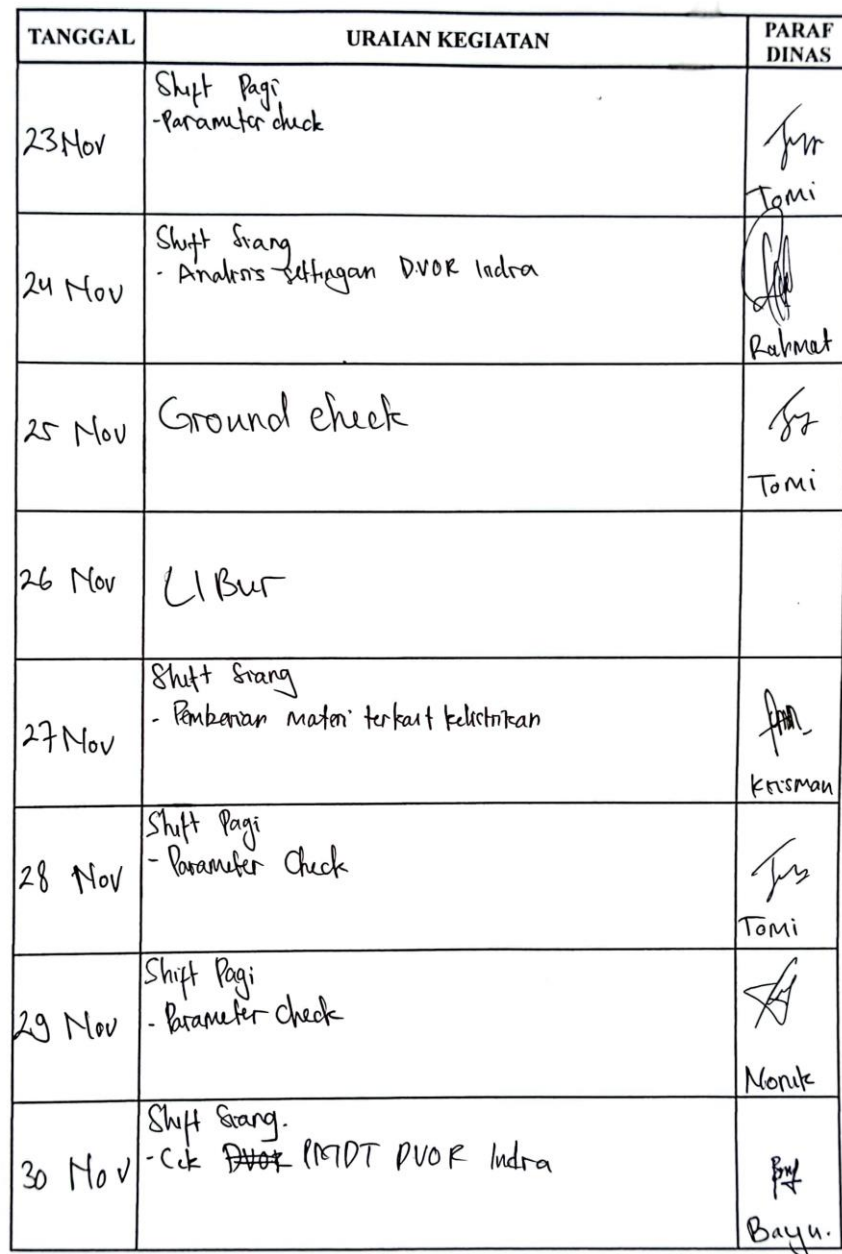 TANGGAL URAIAN KEGIATAN PARAF DINAS
23 Nov
Shift Pagi
- Parameter check
Tomi
24 Nov
Shift Siang
- Analisis settingan DVOR Indra
Rahmat
25 Nov
Ground check
Tomi
26 Nov
LIBur
27 Nov
Shift Siang
- Pemberian materi terkait kelistrikan
Krisman
28 Nov
Shift Pagi
- Parameter Check
Tomi
29 Nov
Shift Pagi
- Parameter Check
Nonik
30 Nov
Shift Siang.
- Cek DVOR PMDT DVOR Indra
Bayu.